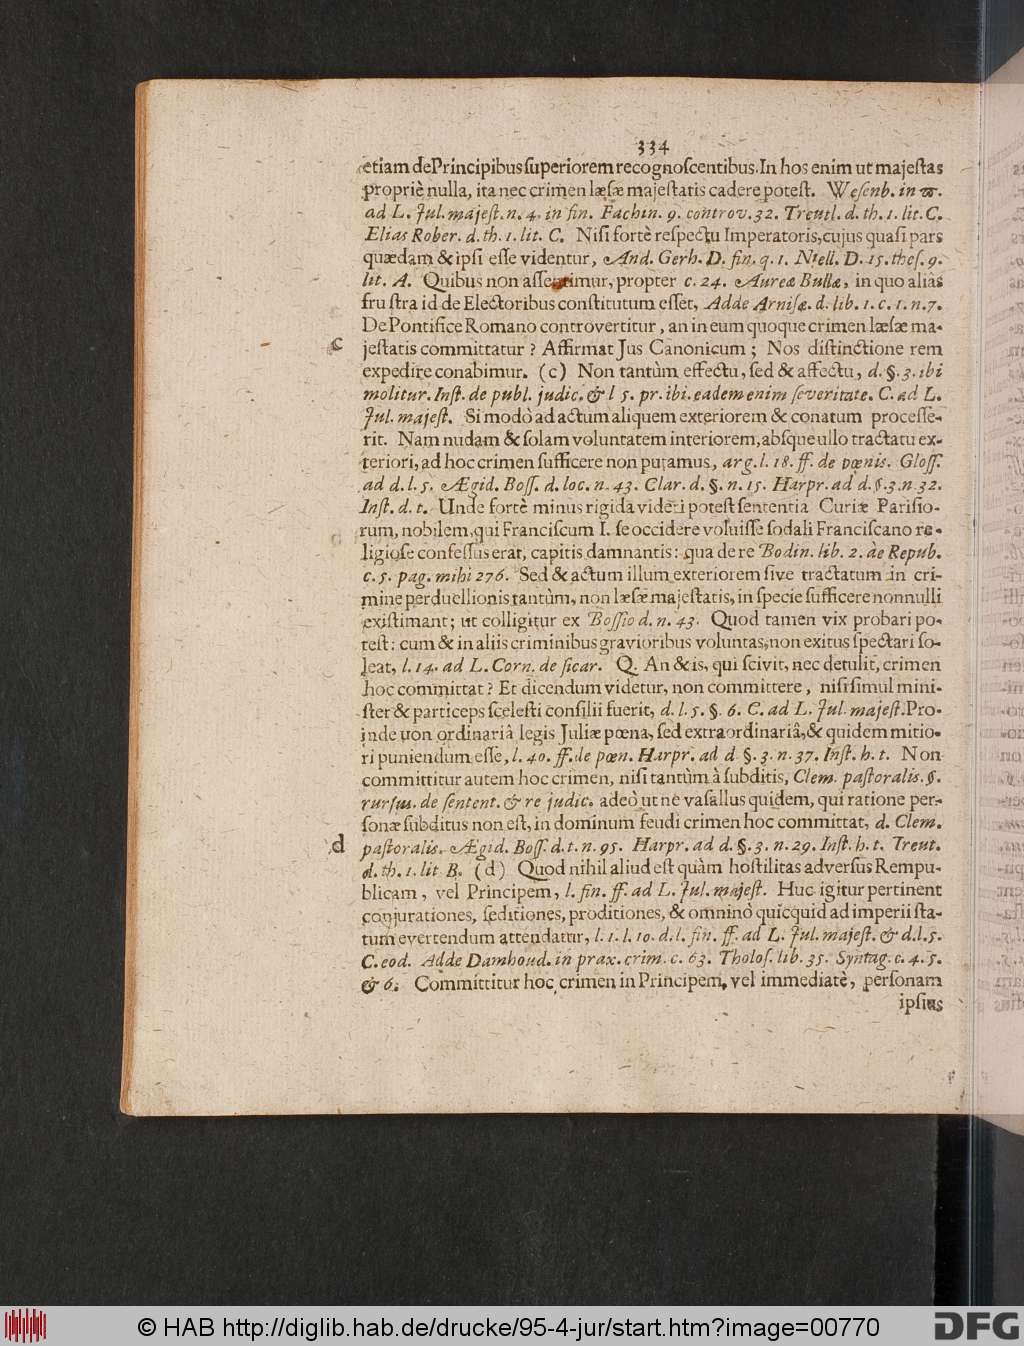 334
etiam de Principibus superiorem recognoscentibus. In hos enim ut majestas
propriè nulla, ita nec crimen læsæ majestatis cadere potest. Wesenb. in ϖ.
ad L. Jul. majest. n. 4. in fin. Fachin. 9. controv. 32. Treutl. d. th. 1. lit. C.
Elias Rober. d. th. 1. lit. C. Nisi fortè respectu Imperatoris, cujus quasi pars
quædam & ipsi esse videntur, And. Gerh. D. fin. q. 1. Niell. D. 15. thes. 9.
lit. A. Quibus non assentimur, propter c. 24. Aureæ Bullæ, in quo aliàs
frustra id de Electoribus constitutum esset, Adde Arnisæ. d. lib. 1. c. 1. n. 7.
De Pontifice Romano controvertitur, an in eum quoque crimen læsæ ma-
c jestatis committatur? Affirmat Jus Canonicum; Nos distinctione rem
expedire conabimur. (c) Non tantùm effectu, sed & affectu, d. §. 3. ibi
molitur. Inst. de publ. judic. & l 5. pr. ibi. eadem enim severitate. C. ad L.
Jul. majest. Si modò ad actum aliquem exteriorem & conatum processe-
rit. Nam nudam & solam voluntatem interiorem, absque ullo tractatu ex-
teriori, ad hoc crimen sufficere non putamus, arg. l. 18. ff. de pœnis. Gloss.
ad d. l. 5. Ægid. Boss. d. loc. n. 43. Clar. d. §. n. 15. Harpr. ad d. §. 3. n. 32.
Inst. d. t. Unde fortè minus rigida videri potest sententia Curiæ Parisio-
rum, nobilem, qui Franciscum I. se occidere voluisse sodali Franciscano re-
ligiose confessus erat, capitis damnantis: qua de re Bodin. lib. 2. de Repub.
c. 5. pag. mihi 276. Sed & actum illum exteriorem sive tractatum in cri-
mine perduellionis tantùm, non læsæ majestatis, in specie sufficere nonnulli
existimant; ut colligitur ex Bossio d. n. 43. Quod tamen vix probari po-
test: cum & in aliis criminibus gravioribus voluntas, non exitus spectari so-
leat, l. 14. ad L. Corn. de sicar. Q. An & is, qui scivit, nec detulit, crimen
hoc committat? Et dicendum videtur, non committere, nisi simul mini-
ster & particeps scelesti consilii fuerit, d. l. 5. §. 6. C. ad L. Jul. majest. Pro-
inde non ordinariâ legis Juliæ pœna, sed extraordinariâ, & quidem mitio-
ri puniendum esse, l. 40. ff. de pœn. Harpr. ad d §. 3. n. 37. Inst. h. t. Non
committitur autem hoc crimen, nisi tantùm à subditis, Clem. pastoralis. §.
rursus. de sentent. & re judic. adeò ut ne vasallus quidem, qui ratione per-
sonæ subditus non est, in dominum feudi crimen hoc committat, d. Clem.
d pastoralis. Ægid. Boss. d. t. n. 95. Harpr. ad d. §. 3. n. 29. Inst. h. t. Treut.
d. th. 1. lit B. (d) Quod nihil aliud est quàm hostilitas adversus Rempu-
blicam, vel Principem, l. fin. ff. ad L. Jul. majest. Huc igitur pertinent
conjurationes, seditiones, proditiones, & omninò quicquid ad imperii sta-
tum evertendum attendatur, l. 1. l. 10. d. l. fin. ff. ad L. Jul. majest. & d. l. 5.
C. eod. Adde Damhoud. in prax. crim. c. 63. Tholos. lib. 35. Syntag. c. 4. 5.
& 6. Committitur hoc crimen in Principem, vel immediatè, personam
ipsius
© HAB http://diglib.hab.de/drucke/95-4-jur/start.htm?image=00770
DFG